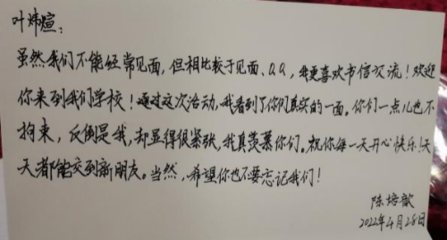 叶炜煊：
虽然我们不能经常见面，但相比较于见面、QQ，我更喜欢书信交流！欢迎
你来到我们学校！通过这次活动，我看到了你们真实的一面。你们一点儿也不
拘束，反倒是我，却显得很紧张，我真羡慕你们。祝你每一天开心快乐！天
天都能交到新朋友。当然，希望你也不要忘记我们！
陈培歆
2022年4月28日